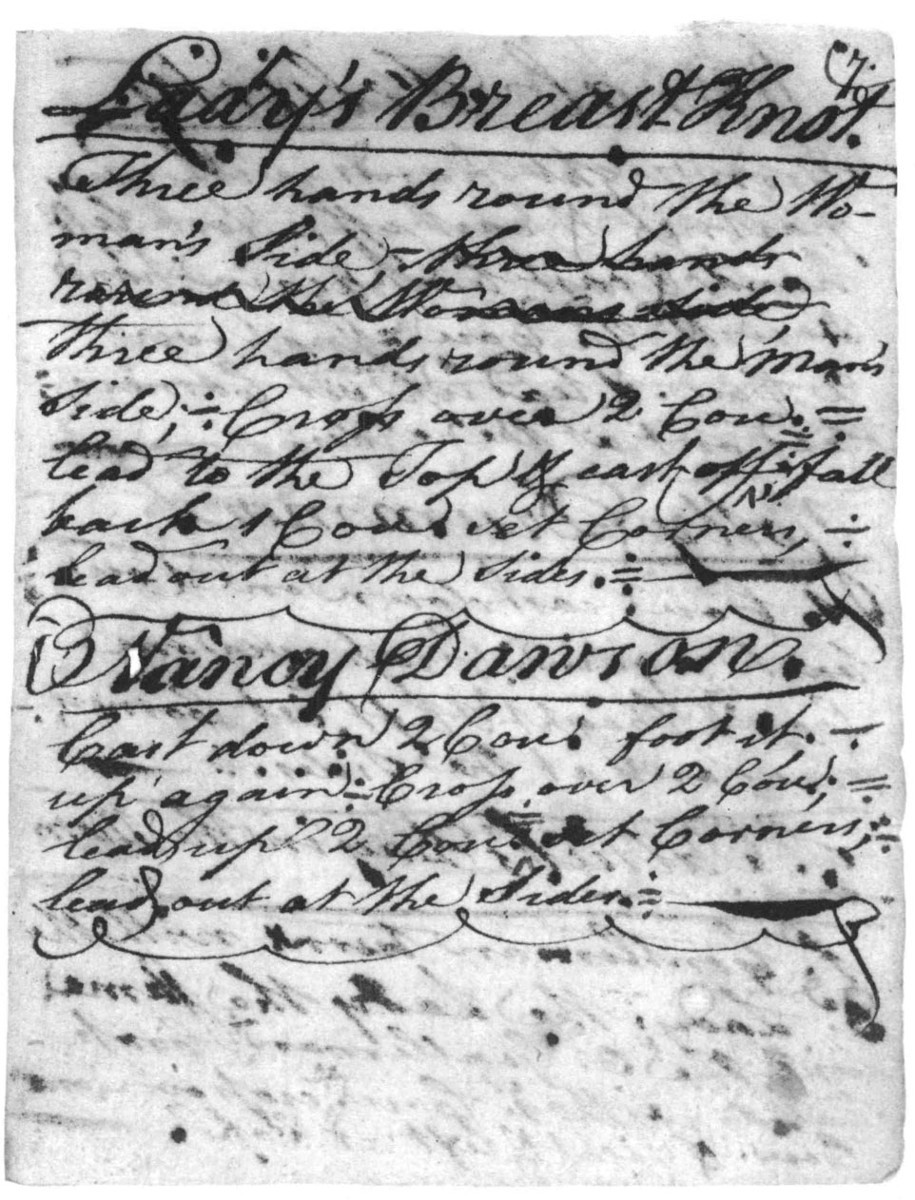 7.
Lady's Breast Knot.
Three hands round the Wo-
man's Side - three hands
round the Womans side
three hands round the man's
Side, ÷ Cross over 2 Cou: =
lead to the Top & cast off ÷ fall
back 1 Cou: set Corners, ÷
lead out at the Sides. =
Nancy Dawson.
Cast down 2 Cou: foot it. -
up again. - Cross over 2 Cou: =
lead up 2 Cou: set Corners, ÷
lead out at the Sides. =